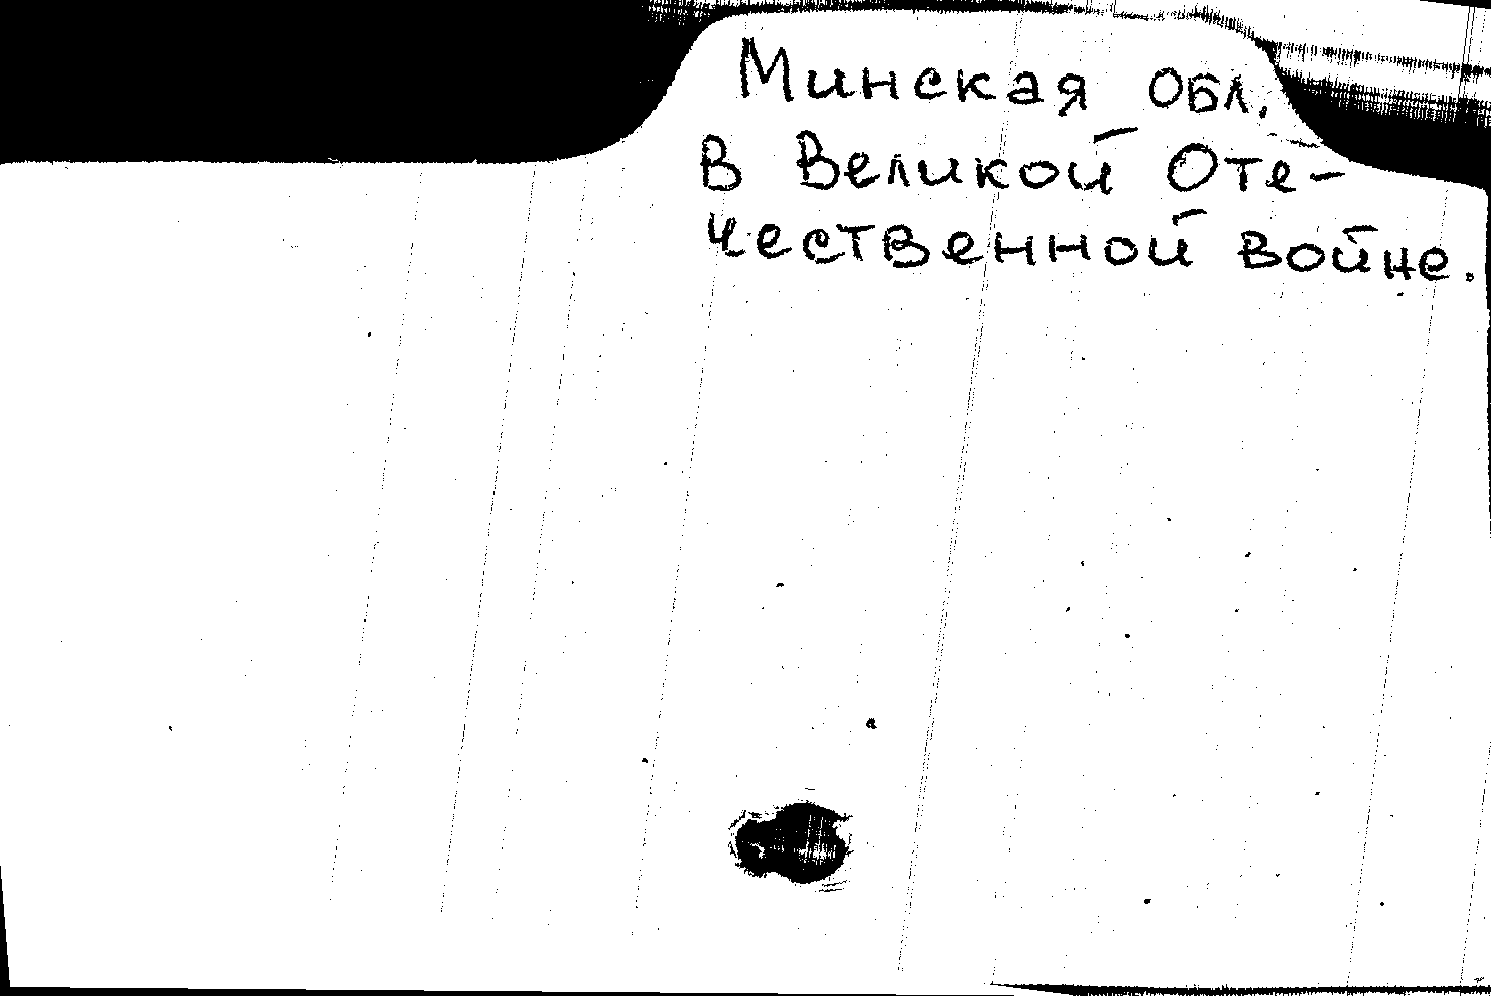 Минская обл.
в Великой Оте-
чественной войне.